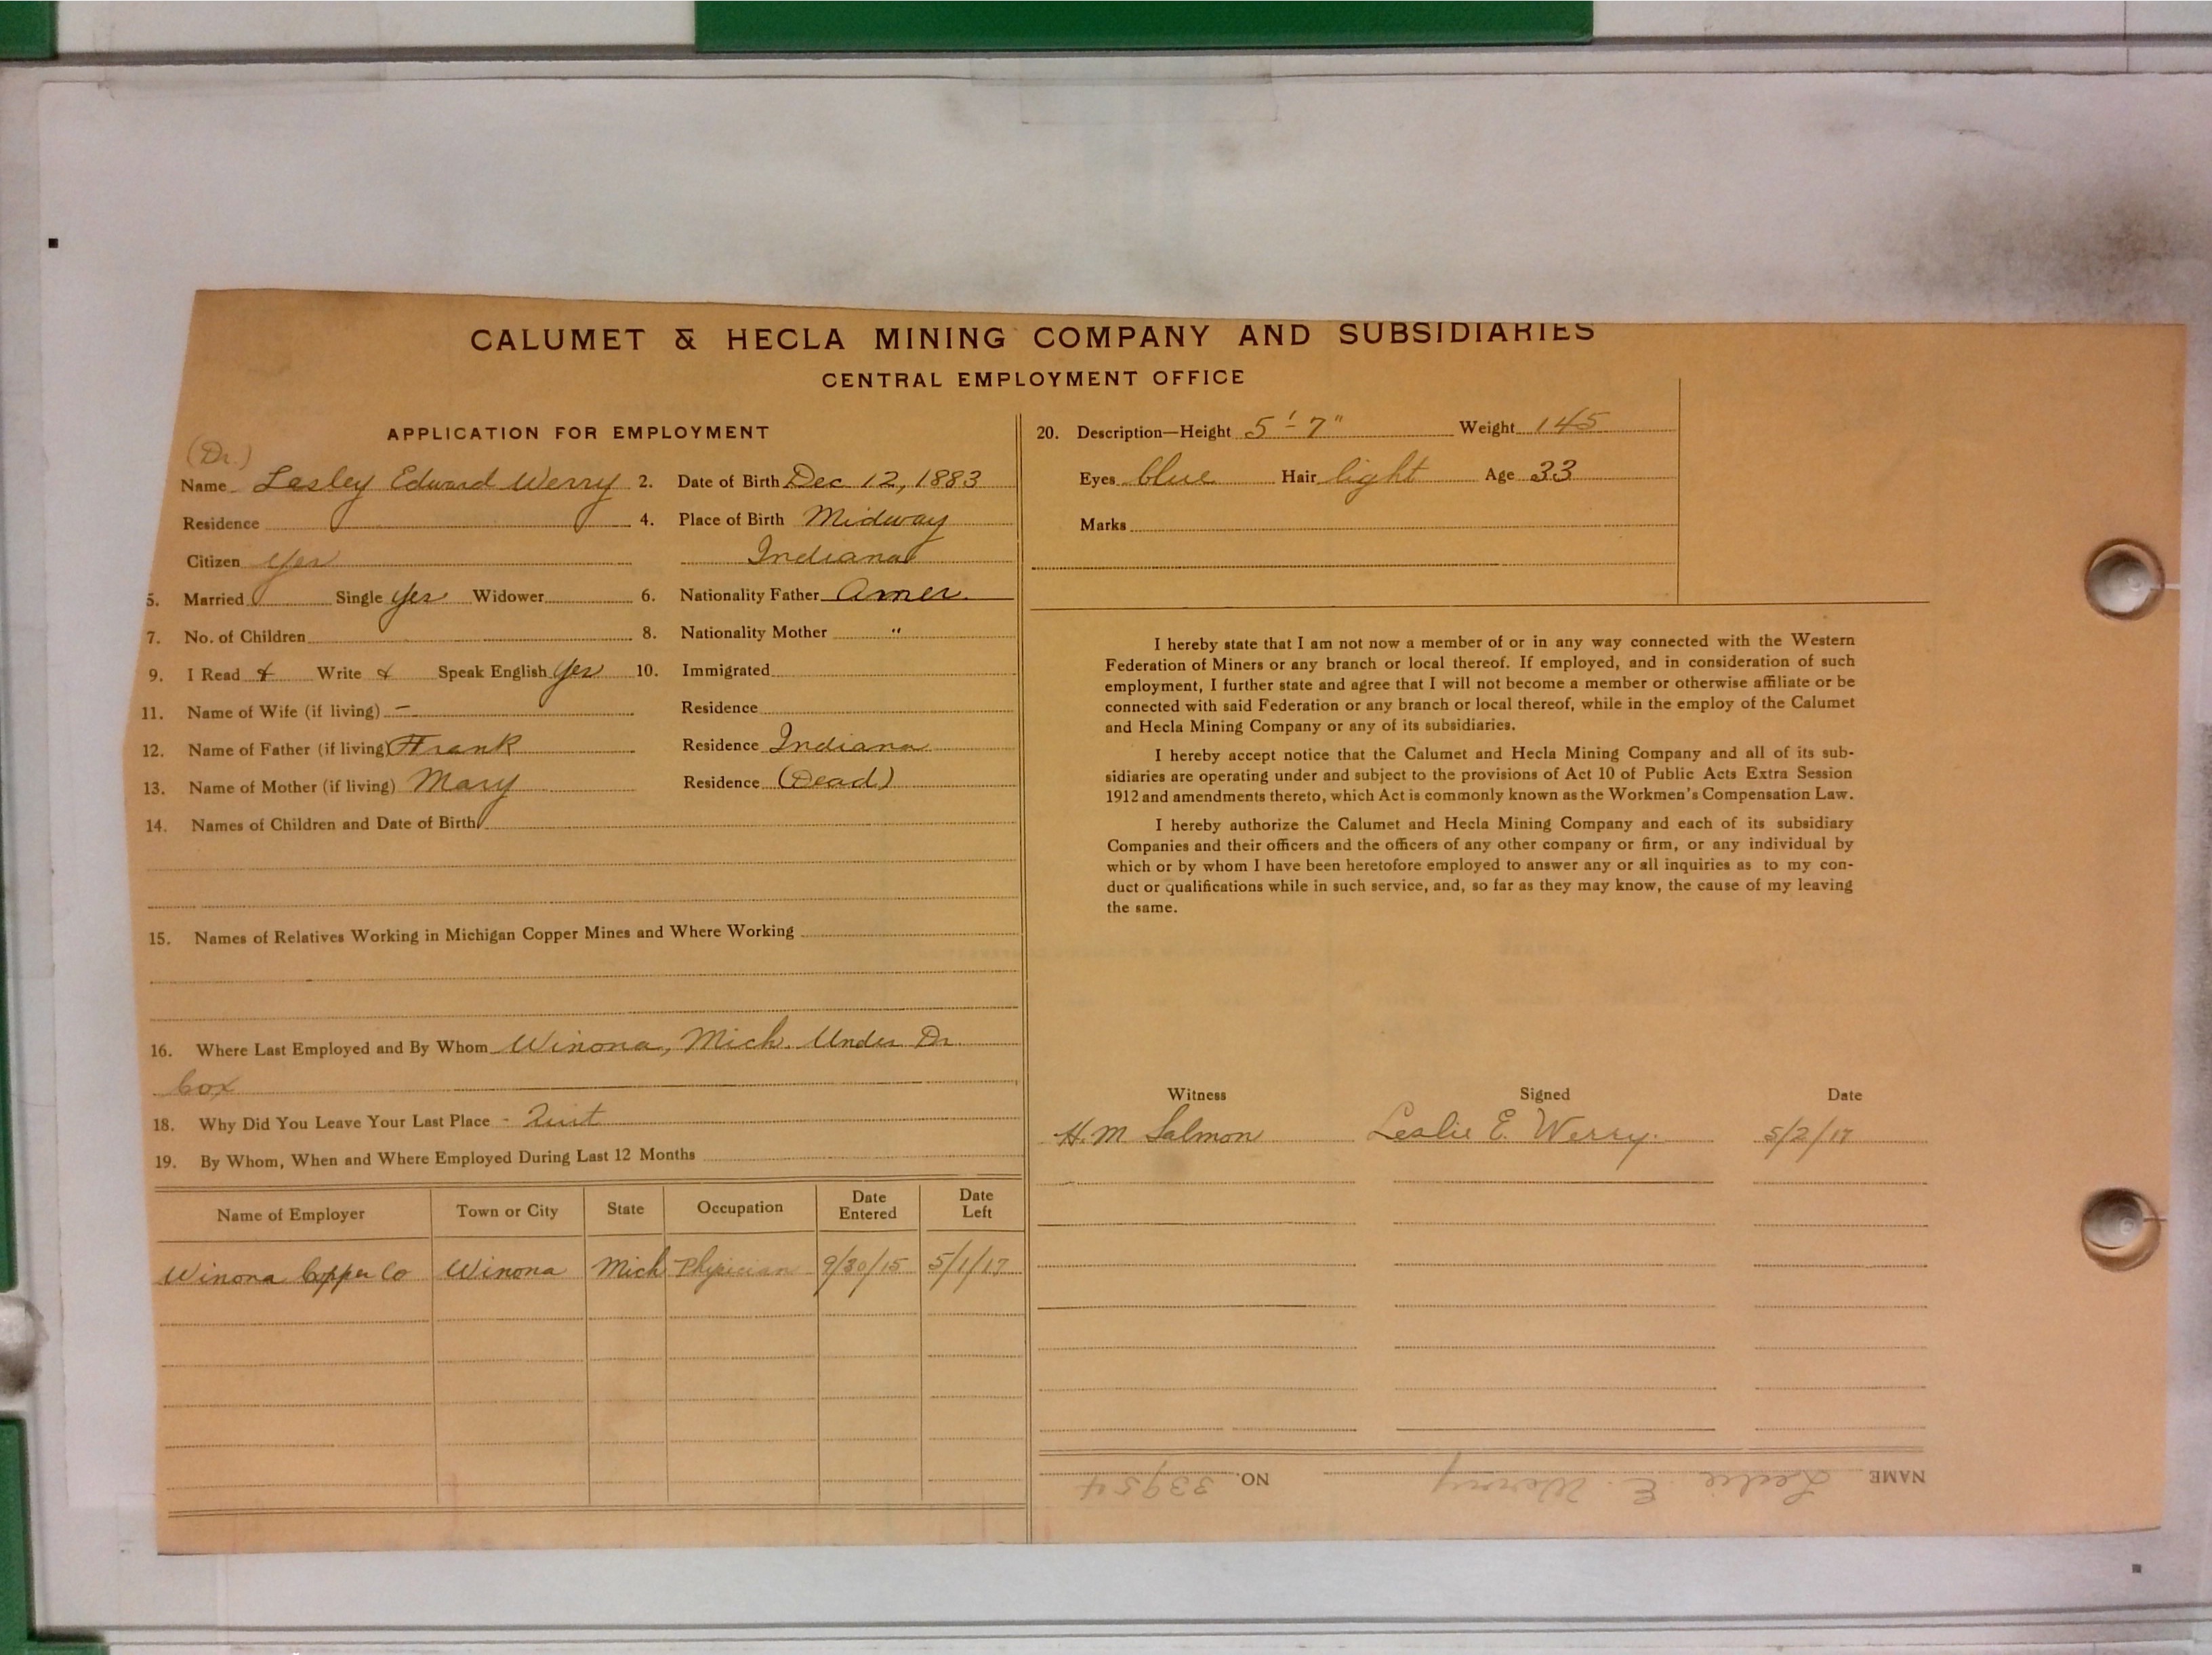 CALUMET & HECLA MINING COMPANY AND SUBSIDIARIES
CENTRAL EMPLOYMENT OFFICE
APPLICATION FOR EMPLOYMENT
(Dr.)
Name Lesley Edward Werry 2. Date of Birth Dec 12, 1883
Residence 4. Place of Birth Midway
Citizen Yes Indiana
5. Married Single Yes Widower 6. Nationality Father Amer.
7. No. of Children 8. Nationality Mother "
9. I Read & Write & Speak English Yes 10. Immigrated
11. Name of Wife (if living) – Residence
12. Name of Father (if living) Frank Residence Indiana
13. Name of Mother (if living) Mary Residence (Dead)
14. Names of Children and Date of Birth
15. Names of Relatives Working in Michigan Copper Mines and Where Working
16. Where Last Employed and By Whom Winona, Mich. Under Dr.
Cox
18. Why Did You Leave Your Last Place - Quit
19. By Whom, When and Where Employed During Last 12 Months
Name of Employer Town or City State Occupation Date Entered Date Left
Winona Copper Co Winona Mich Physician 9/30/15 5/1/17
20. Description—Height 5'-7" Weight 145
Eyes blue Hair light Age 33
Marks
I hereby state that I am not now a member of or in any way connected with the Western
Federation of Miners or any branch or local thereof. If employed, and in consideration of such
employment, I further state and agree that I will not become a member or otherwise affiliate or be
connected with said Federation or any branch or local thereof, while in the employ of the Calumet
and Hecla Mining Company or any of its subsidiaries.
I hereby accept notice that the Calumet and Hecla Mining Company and all of its sub-
sidiaries are operating under and subject to the provisions of Act 10 of Public Acts Extra Session
1912 and amendments thereto, which Act is commonly known as the Workmen's Compensation Law.
I hereby authorize the Calumet and Hecla Mining Company and each of its subsidiary
Companies and their officers and the officers of any other company or firm, or any individual by
which or by whom I have been heretofore employed to answer any or all inquiries as to my con-
duct or qualifications while in such service, and, so far as they may know, the cause of my leaving
the same.
Witness Signed Date
H. M Salmon Leslie E. Werry. 5/2/17
NAME Leslie E. Werry NO. 33954